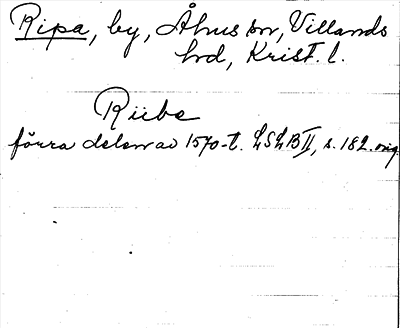 Ripa, by, Åhus sn, Villands
hd, Krist. l.
Riibe
förra delen av 1570-t. LSLB II, s. 182. orig.